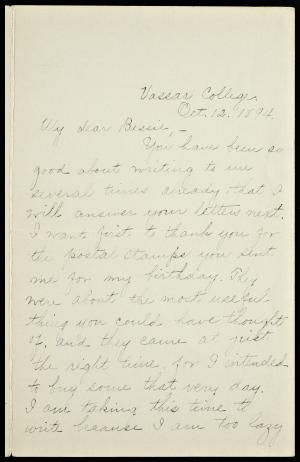 Vassar College,
Oct. 12. 1894.
My dear Bessie,-
You have been so
good about writing to me
several times already that I
will answer your letters next.
I want first to thank you for
the postal stamps you sent
me for my birthday. They
were about the most useful
thing you could have thought
of, and they came at just
the right time, for I intended
to buy some that very day.
I am taking this time to
write because I am too lazy